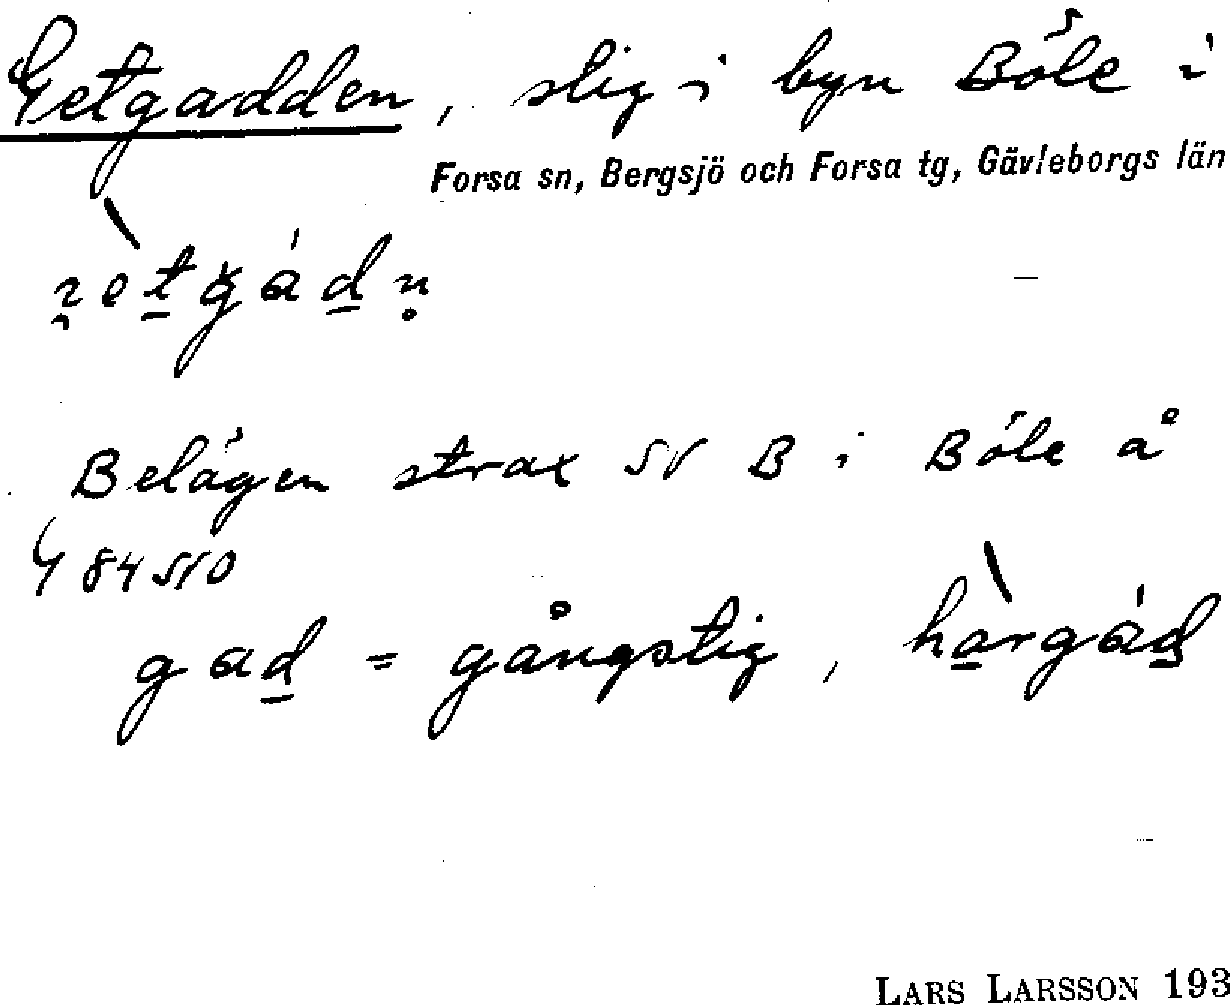 Getgadden, stig i byn Böle i
Forsa sn, Bergsjö och Forsa tg, Gävleborgs län
Belägen strax N B i Böle å
G 84 NO
gad = gångstig, hargád
LARS LARSSON 193